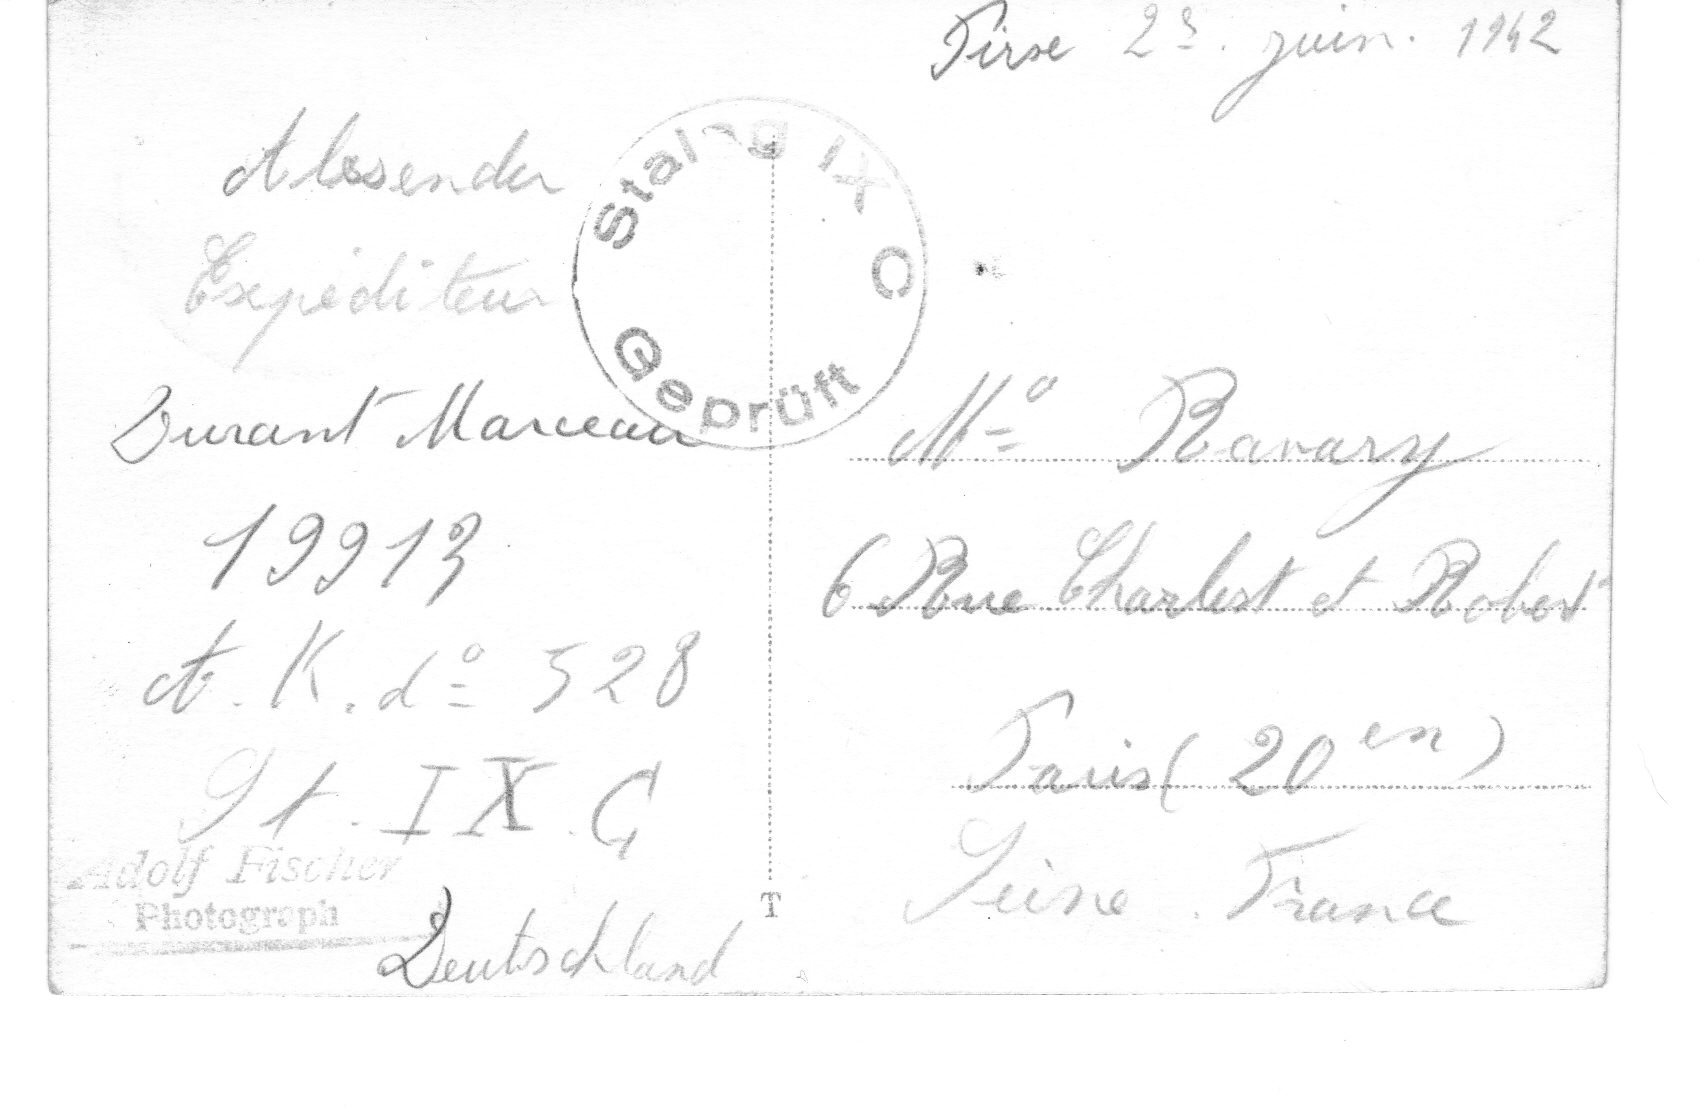 23. juin. 1942
Absender
Expéditeur
Stalag IX C
Geprüft
Durant Marceau
19913
A. K. do 528
St. IX. C
Adolf Fischer
Photograph
Deutschland
T
Mo Ravary
6 Rue Charlest et Robert
Paris (20en)
Seine. France